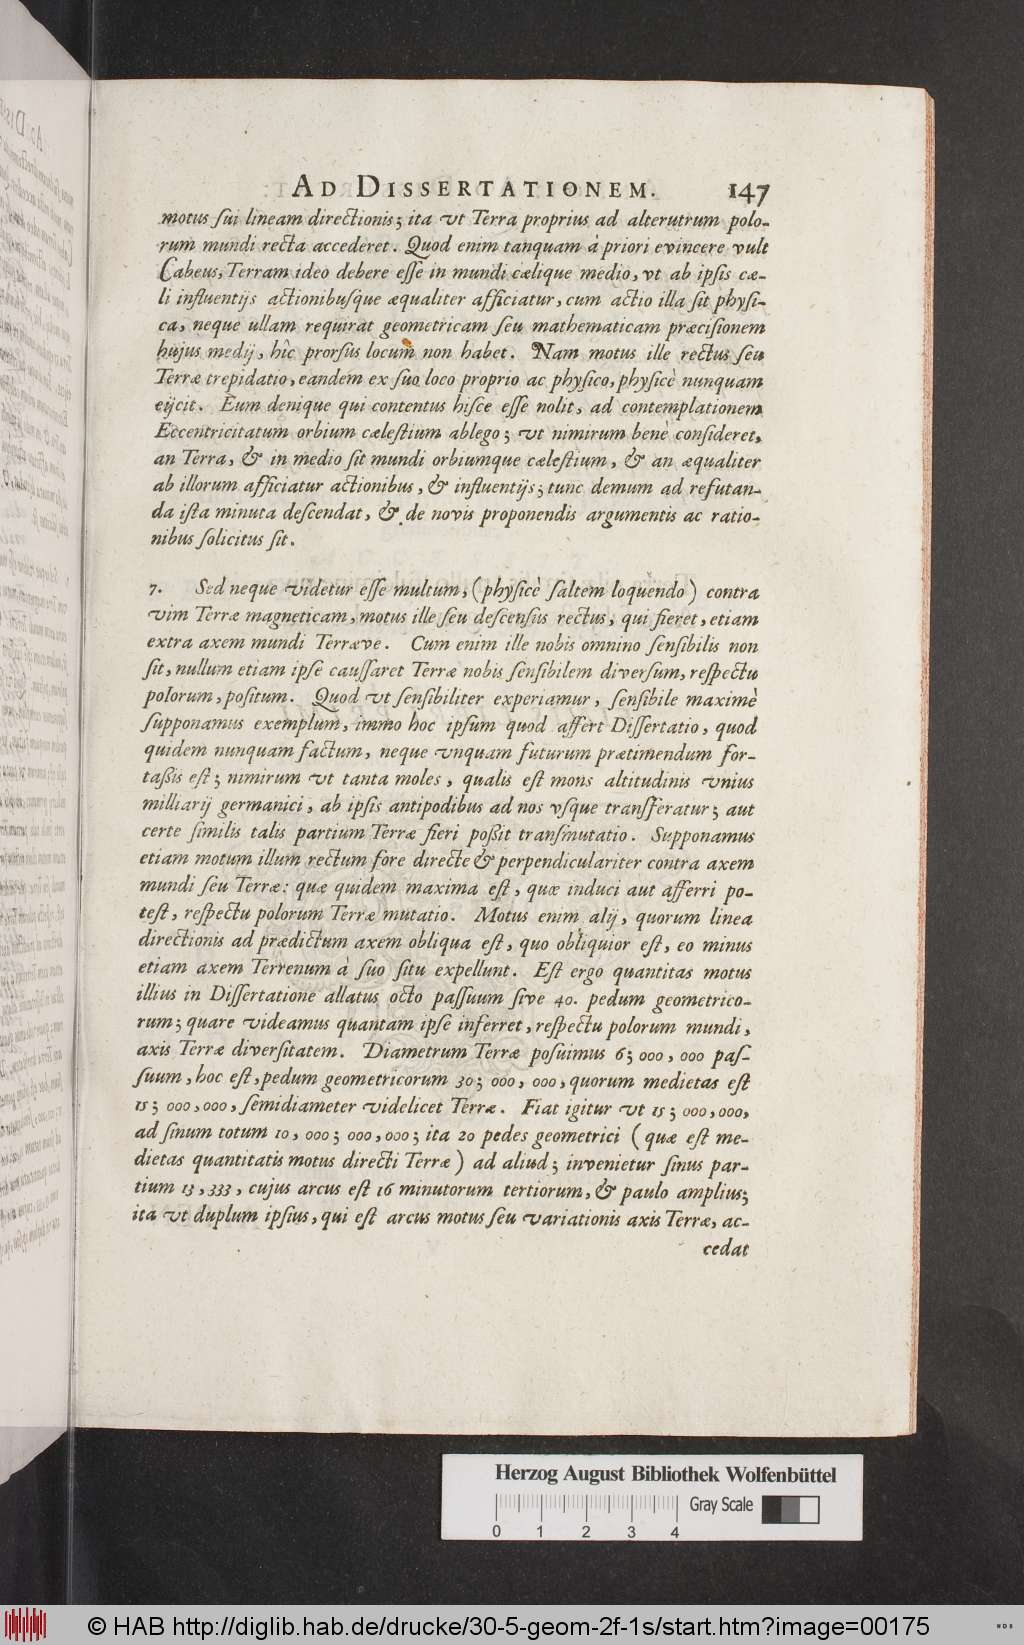 AD DISSERTATIONEM. 147
motus ſui lineam directionis; ita vt Terra proprius ad alterutrum polo-
rum mundi recta accederet. Quod enim tanquam à priori evincere vult
Cabeus, Terram ideo debere eſſe in mundi cælique medio, vt ab ipſis cæ-
li influentijs actionibuſque æqualiter afficiatur, cum actio illa ſit phyſi-
ca, neque ullam requirat geometricam ſeu mathematicam præciſionem
hujus medij, hîc prorſus locum non habet. Nam motus ille rectus ſeu
Terræ trepidatio, eandem ex ſuo loco proprio ac phyſico, phyſicè nunquam
eijcit. Eum denique qui contentus hiſce eſſe nolit, ad contemplationem
Eccentricitatum orbium cæleſtium ablego; vt nimirum benè conſideret,
an Terra, & in medio ſit mundi orbiumque cæleſtium, & an æqualiter
ab illorum afficiatur actionibus, & influentijs; tunc demum ad refutan-
da iſta minuta deſcendat, & de novis proponendis argumentis ac ratio-
nibus ſolicitus ſit.
7. Sed neque videtur eſſe multum, (phyſicè ſaltem loquendo) contra
vim Terræ magneticam, motus ille ſeu deſcenſus rectus, qui fieret, etiam
extra axem mundi Terræve. Cum enim ille nobis omnino ſenſibilis non
ſit, nullum etiam ipſe cauſſaret Terræ nobis ſenſibilem diverſum, reſpectu
polorum, poſitum. Quod vt ſenſibiliter experiamur, ſenſibile maximè
ſupponamus exemplum, immo hoc ipſum quod affert Diſſertatio, quod
quidem nunquam factum, neque vnquam futurum prætimendum for-
taßis eſt; nimirum vt tanta moles, qualis eſt mons altitudinis vnius
milliarij germanici, ab ipſis antipodibus ad nos vſque transferatur; aut
certe ſimilis talis partium Terræ fieri poßit tranſmutatio. Supponamus
etiam motum illum rectum fore directe & perpendiculariter contra axem
mundi ſeu Terræ: quæ quidem maxima eſt, quæ induci aut afferri po-
teſt, reſpectu polorum Terræ mutatio. Motus enim alij, quorum linea
directionis ad prædictum axem obliqua eſt, quo obliquior eſt, eo minus
etiam axem Terrenum à ſuo ſitu expellunt. Eſt ergo quantitas motus
illius in Diſſertatione allatus octo paſſuum ſive 40. pedum geometrico-
rum; quare videamus quantam ipſe inferret, reſpectu polorum mundi,
axis Terræ diverſitatem. Diametrum Terræ poſuimus 6; 000, 000 paſ-
ſuum, hoc eſt, pedum geometricorum 30; 000, 000, quorum medietas eſt
15; 000, 000, ſemidiameter videlicet Terræ. Fiat igitur vt 15; 000, 000,
ad ſinum totum 10, 000; 000, 000; ita 20 pedes geometrici (quæ eſt me-
dietas quantitatis motus directi Terræ) ad aliud; invenietur ſinus par-
tium 13, 333, cujus arcus eſt 16 minutorum tertiorum, & paulo amplius;
ita vt duplum ipſius, qui eſt arcus motus ſeu variationis axis Terræ, ac-
cedat
Herzog August Bibliothek Wolfenbüttel
Gray Scale
0 1 2 3 4
© HAB http://diglib.hab.de/drucke/30-5-geom-2f-1s/start.htm?image=00175